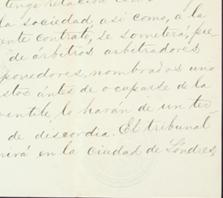 tenga relación con
la sociedad, así como, a la
ente contrato, se someterá, pre
de árbitros arbitradores
ponedores, nombrados uno
stos ántes de ocuparse de la
ventile, lo harán de un ter
de discordia. El tribunal
nirá en la ciudad de Londres